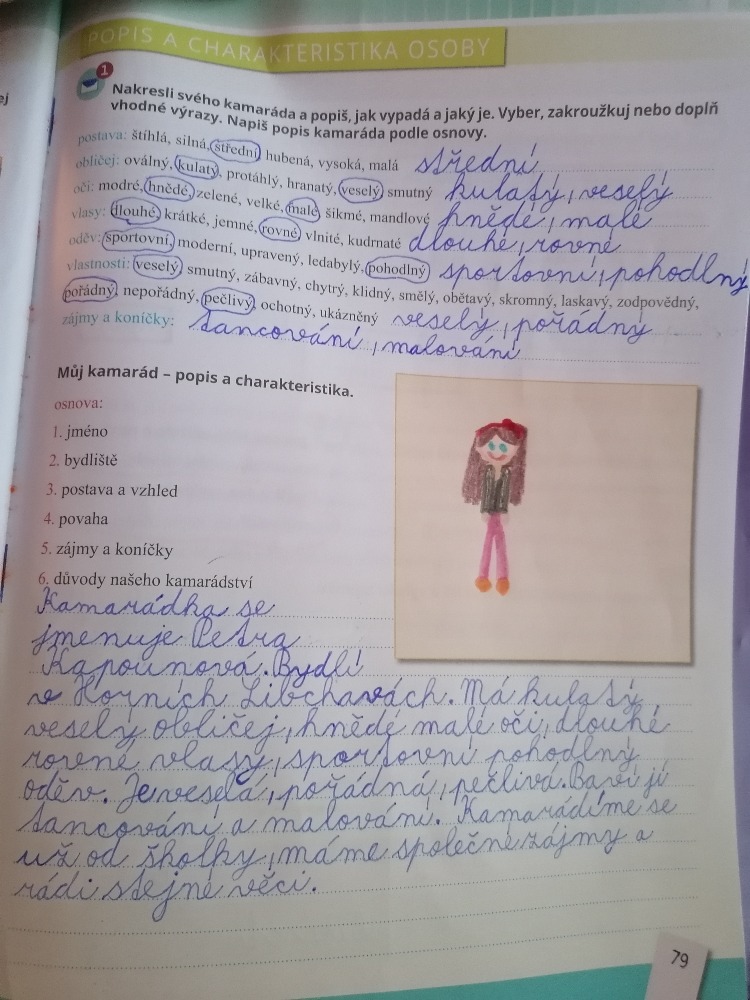 ej
POPIS A CHARAKTERISTIKA OSOBY
1
Nakresli svého kamaráda a popiš, jak vypadá a jaký je. Vyber, zakroužkuj nebo doplň
vhodné výrazy. Napiš popis kamaráda podle osnovy.
postava: štíhlá, silná, střední, hubená, vysoká, malá střední
obličej: oválný, kulatý, protáhlý, hranatý, veselý, smutný kulatý, veselý
oči: modré, hnědé, zelené, velké, malé, šikmé, mandlové hnědé, malé
vlasy: dlouhé, krátké, jemné, rovné, vlnité, kudrnaté dlouhé, rovné
oděv: sportovní, moderní, upravený, ledabylý, pohodlný sportovní, pohodlný
vlastnosti: veselý, smutný, zábavný, chytrý, klidný, smělý, obětavý, skromný, laskavý, zodpovědný,
pořádný, nepořádný, pečlivý, ochotný, ukázněný veselý, pořádný
zájmy a koníčky: tancování, malování
Můj kamarád – popis a charakteristika.
osnova:
1. jméno
2. bydliště
3. postava a vzhled
4. povaha
5. zájmy a koníčky
6. důvody našeho kamarádství
Kamarádka se
jmenuje Petra
Kapounová. Bydlí
v Horních Libchavách. Má kulatý
veselý obličej, hnědé malé oči, dlouhé
rovné vlasy, sportovní pohodlný
oděv. Je veselá, pořádná, pečlivá. Baví ji
tancování a malování. Kamarádíme se
už od školky, máme společné zájmy a
rádi stejné věci.
79